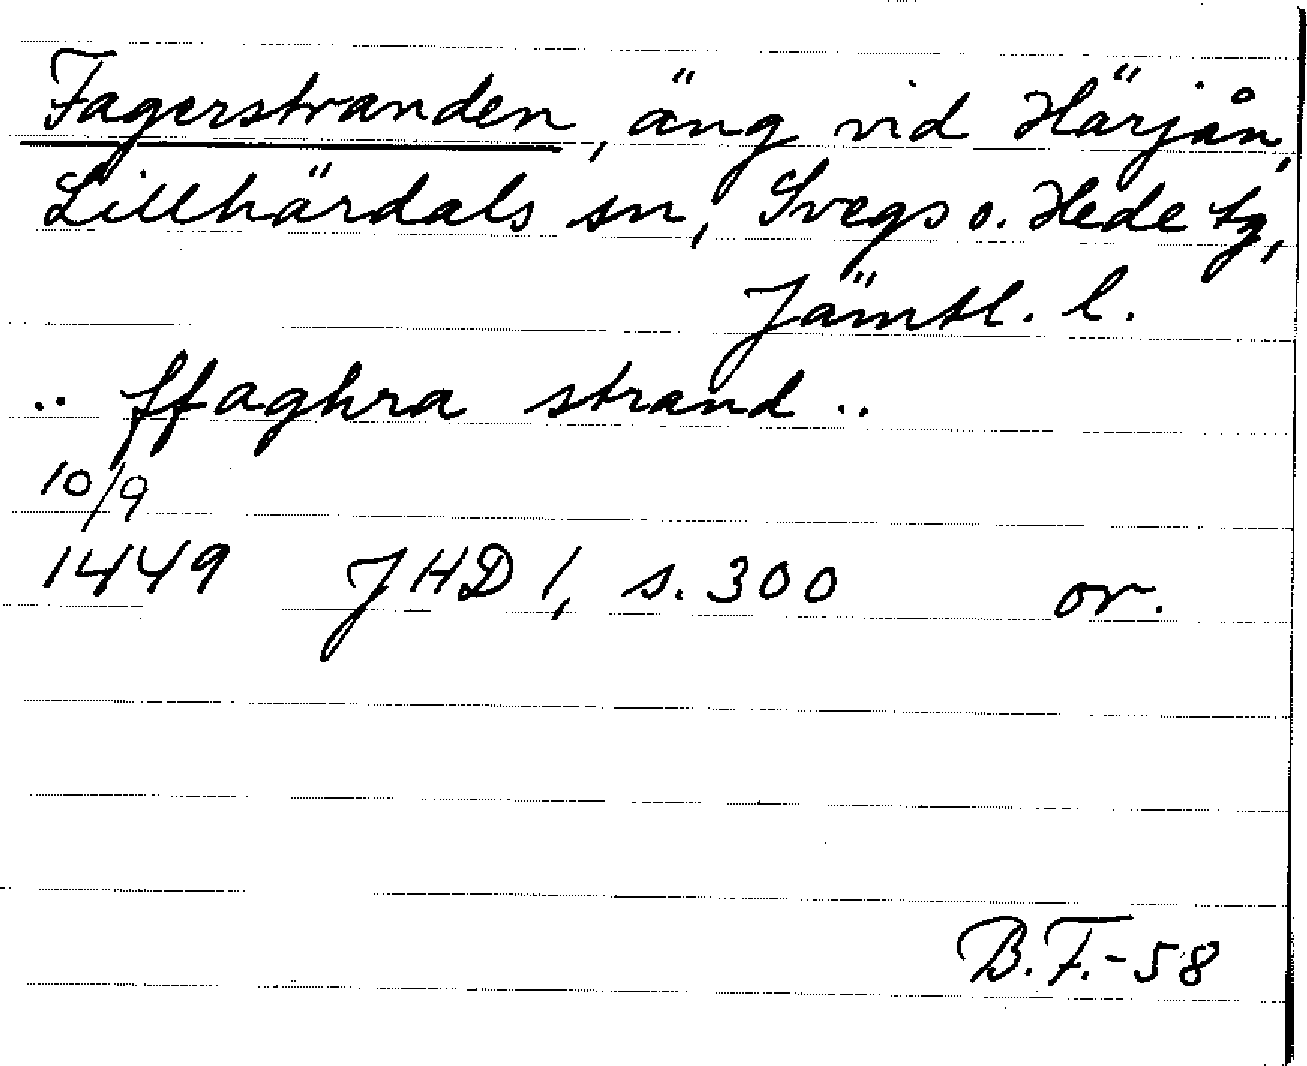 Fagerstranden, äng vid Härjån,
Lillhärdals sn, Svegs o. Hede tg,
Jämtl. l.
.. ffaghra strand ..
10/9
1449 JHD 1, s. 300 or.
B.F.-58